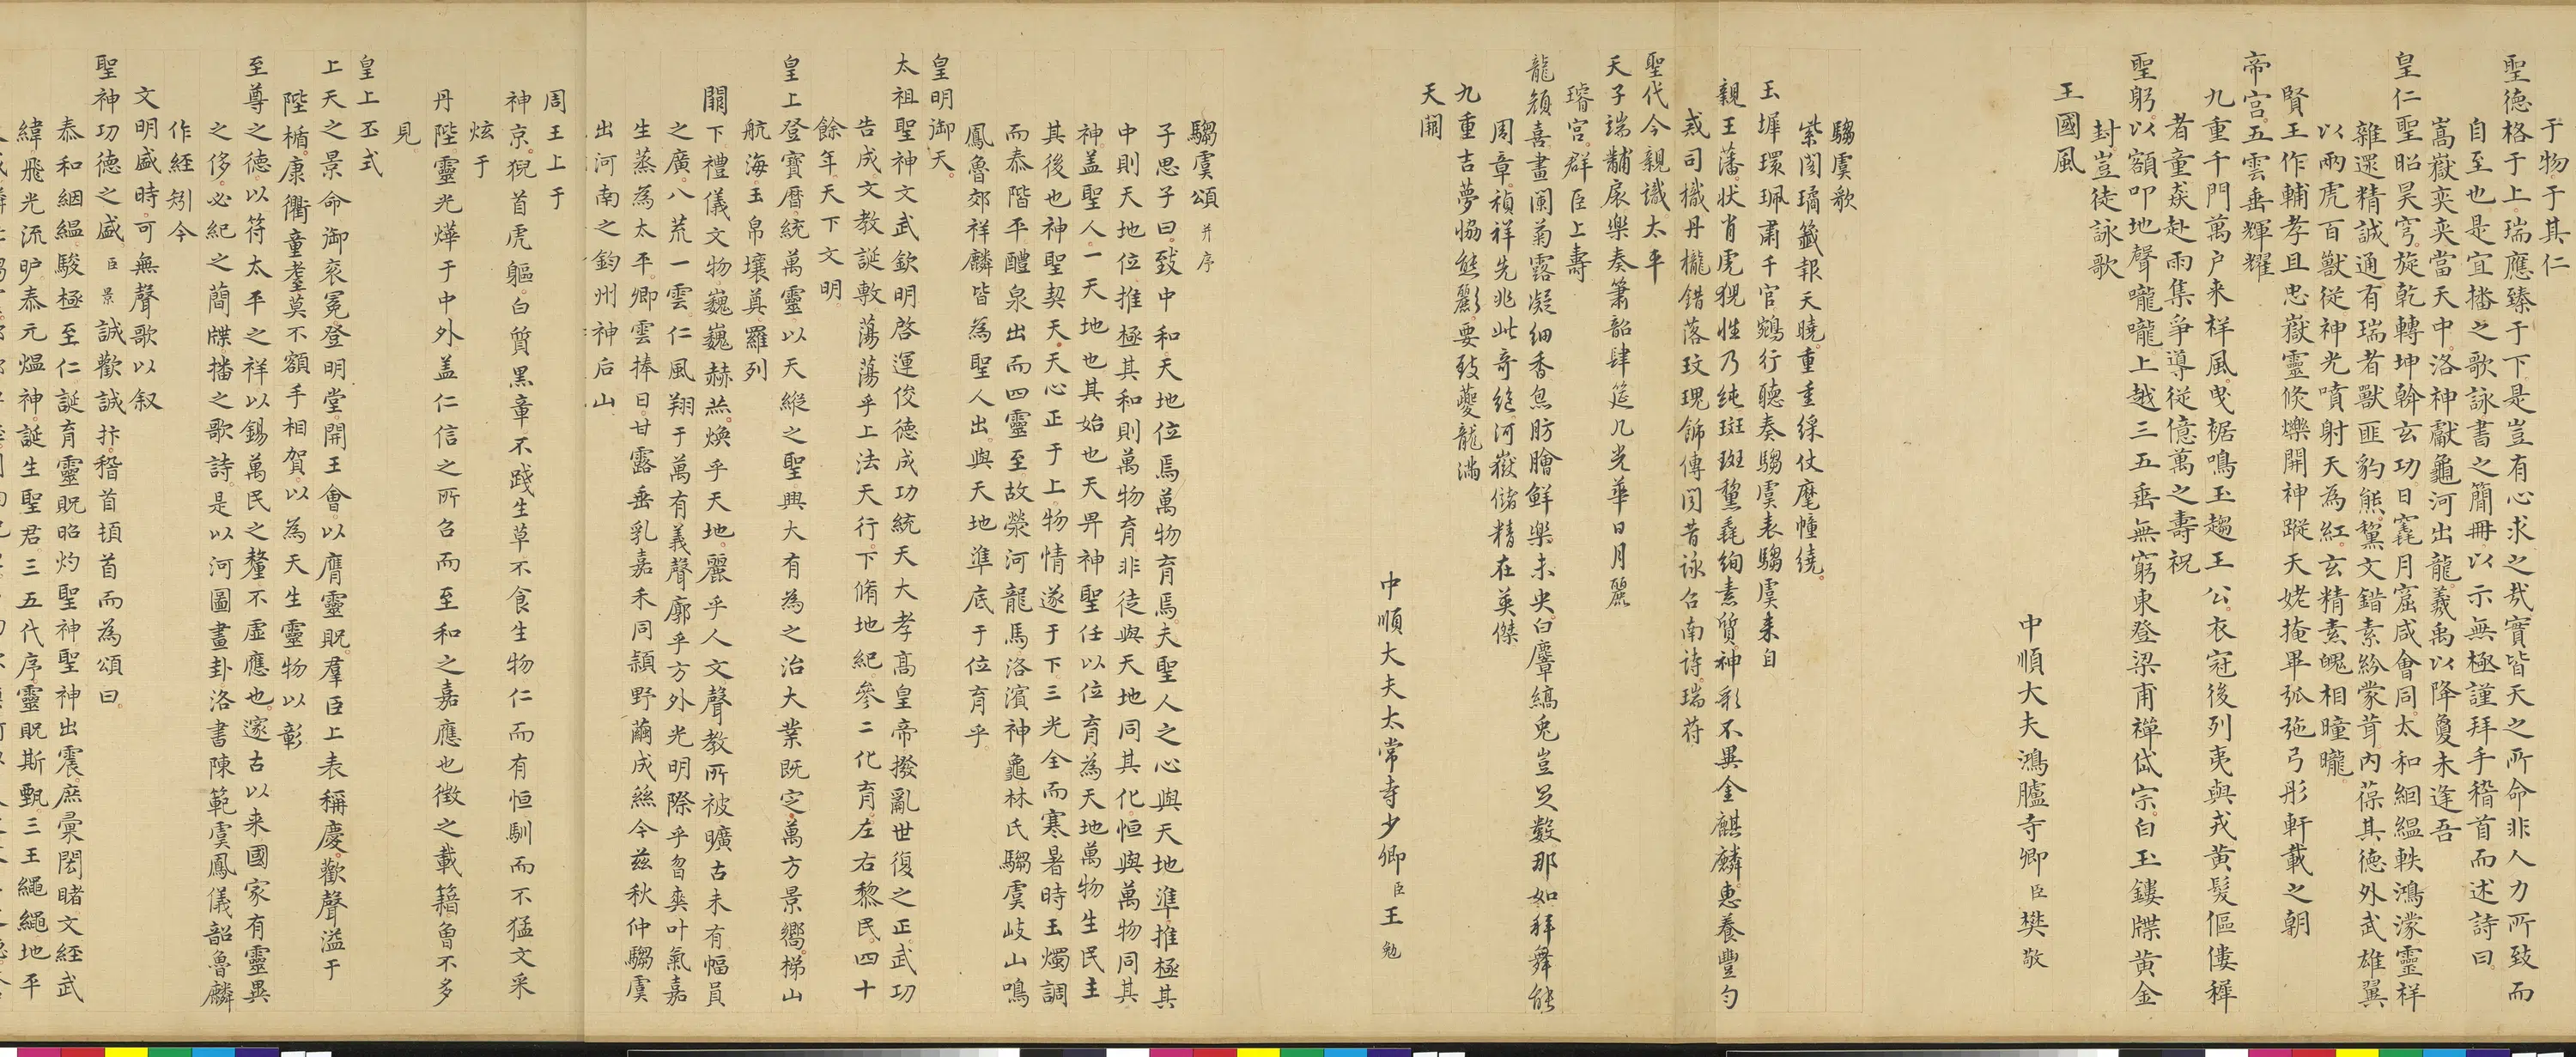 于物于其仁
聖德格于上瑞應臻于下是豈有心求之㦲實皆天之所命非人力所致而
自至也是宜播之歌詠書之簡冊以示無極謹拜手稽首而述詩曰
嵩嶽奕奕當天中洛神獻龜河出龍羲禹以降敻未逢吾
皇仁聖昭昊穹旋乾轉坤斡玄功日窟月窟咸會同太和絪縕軼鴻濛靈祥
雜遝精誠通有瑞者獸匪豹熊黧文錯素紛蒙茸內葆其德外武雄翼
以兩虎百獸從神光噴射天為紅玄精素魄相曈曨
賢王作輔孝且忠嶽靈倏爍開神蹤天姥掩畢弧弛弓彤軒載之朝
帝宫五雲垂輝耀
九重千門萬户来祥風曳裾鳴玉趨王公衣冠後列夷與戎黄髮傴僂稺
者童焱赴雨集爭導從億萬之壽祝
聖躬以額叩地聲嚨嚨上越三五垂無窮東登梁甫禪岱宗白玉鏤牒黄金
封豈徒詠歌
王國風
中順大夫鴻臚寺卿臣樊敬
騶虞歌
紫閣璚籤報天曉重重綵仗麾幢繞
玉墀環珮肅千官鵷行聽奏騶虞表騶虞来自
親王藩狀肖虎猊性乃純斑斑黧毳絢素質神彩不異金麒麟惠養豐勻
戒司檻丹櫳錯落玟瑰飾傳聞昔詠召南诗瑞苻
聖代今親識太平
天子端黼扆樂奏簫韶肆筵几光華日月麗
璿宫群臣上壽
龍顔喜畫闌菊露凝細香凫肪膾鮮樂未央白麞縞兎豈足數那如拜舞能
周章禎祥先兆此奇絶河嶽儲精在英傑
九重吉夢恊熊羆要致夔龍满
天闕
中順大夫太常寺少卿臣王勉
騶虞頌并序
子思子曰致中和天地位焉萬物育焉夫聖人之心與天地準推極其
中則天地位推極其和則萬物育非徒與天地同其化恒與萬物同其
神盖聖人一天地也其始也天畀神聖任以位育為天地萬物生民主
其後也神聖契天天心正于上物情遂于下三光全而寒暑時玉燭調
而泰階平醴泉出而四靈至故滎河龍馬洛濱神龜林氏騶虞岐山鳴
鳳魯郊祥麟皆為聖人出與天地準底于位育乎
皇明御天
太祖聖神文武欽明啓運俊德成功統天大孝髙皇帝撥亂世復之正武功
告成文教誕敷蕩蕩乎上法天行下脩地紀參二化育左右黎民四十
餘年天下文明
皇上登寶曆統萬靈以天縱之聖興大有為之治大業既定萬方景嚮梯山
航海玉帛壤奠羅列
闕下禮儀文物巍巍赫烝煥乎天地麗乎人文聲教所被曠古未有幅員
之廣八荒一雲仁風翔于萬有義聲廓乎方外光明際乎曶奭叶氣嘉
生蒸為太平卿雲捧日甘露垂乳嘉禾同頴野繭成絲今兹秋仲騶虞
出河南之鈞州神后山
周王上于
神京猊首虎軀白質黒章不踐生草不食生物仁而有恒馴而不猛文采
炫于
丹陛靈光燁于中外盖仁信之所召而至和之嘉應也徴之載籍魯不多
見
皇上丕式
上天之景命御衮冕登明堂開王會以膺靈貺羣臣上表稱慶歡聲溢于
陛楯康衢童耋莫不額手相賀以為天生靈物以彰
至尊之德以符太平之祥以錫萬民之釐不虚應也邃古以来國家有靈異
之侈必紀之蕳牒播之歌詩是以河圖畫卦洛書陳範虞鳳儀韶魯麟
作経矧今
文明盛時可無聲歌以叙
聖神功德之盛臣景誠歡誠抃稽首頓首而為頌曰
泰和絪緼駿極至仁誕育靈貺昭灼聖神聖神出震庶彙闓睹文経武
緯飛光流昈泰元煴神誕生聖君三五代序靈貺斯甄三王繩繩地平